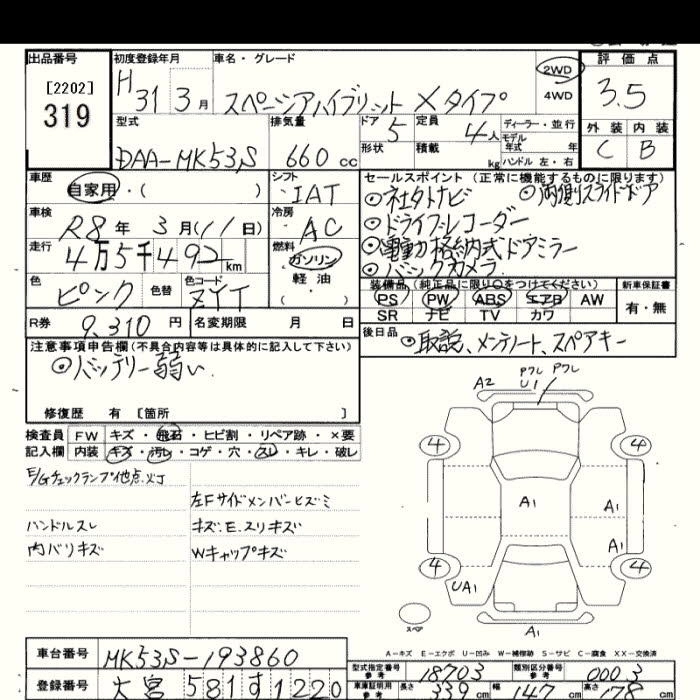 出品番号 初度登録年月 車名・グレード 評価点
[2202]
319
H31 3月 スペーシアハイブリット Xタイプ 2WD 4WD 3.5
型式 排気量 ドア 定員 ディーラー・並行 外装 内装
DAA-MK53S 660cc 5 4人 モデル年式 年 C B
形状 積載 kg ハンドル 左・右
車歴 自家用・( ) シフト ・IAT
セールスポイント (正常に機能するものに限ります)
◎社外ナビ ◎両側スライドドア
◎ドライブレコーダー
◎電動格納式ドアミラー
◎バックカメラ
車検 R8年 3月(11日) 冷房 AC
走行 4万5千492km 燃料 ガソリン・軽油・( )
色 ピンク 色替 色コード ZYT
装備品 (純正品に限り○をつけてください) 新車保証書
PS PW ABS エアB AW 有・無
SR ナビ TV カワ
R券 9,310円 名変期限 月 日
後日品 ◎取説、メンテノート、スペアキー
注意事項申告欄(不具合内容等は具体的に記入して下さい)
◎バッテリー弱い
修復歴 有 [箇所 ]
検査員 FW キズ・飛石・ヒビ割・リペア跡・×要
記入欄 内装 キズ・汚レ・コゲ・穴・スレ・キレ・破レ
E/Gチェックランプ他点灯
左Fサイドメンバーヒズミ
ハンドルスレ キズ.E.スリキズ
内バリキズ Wキャップキズ
A2 U1 Pワレ Pワレ
4 4
A1 A1
A1
4 4
UA1
スペア A1
A-キズ E-エクボ U-凹み W-補修跡 S-サビ C-腐食 XX-交換済
車台番号 MK53S-193860
型式指定番号 参考 18703 類別区分番号 参考 0003
登録番号 大宮 581す1220
車庫証明用 参考 長さ 339cm 幅 147cm 高さ 178cm